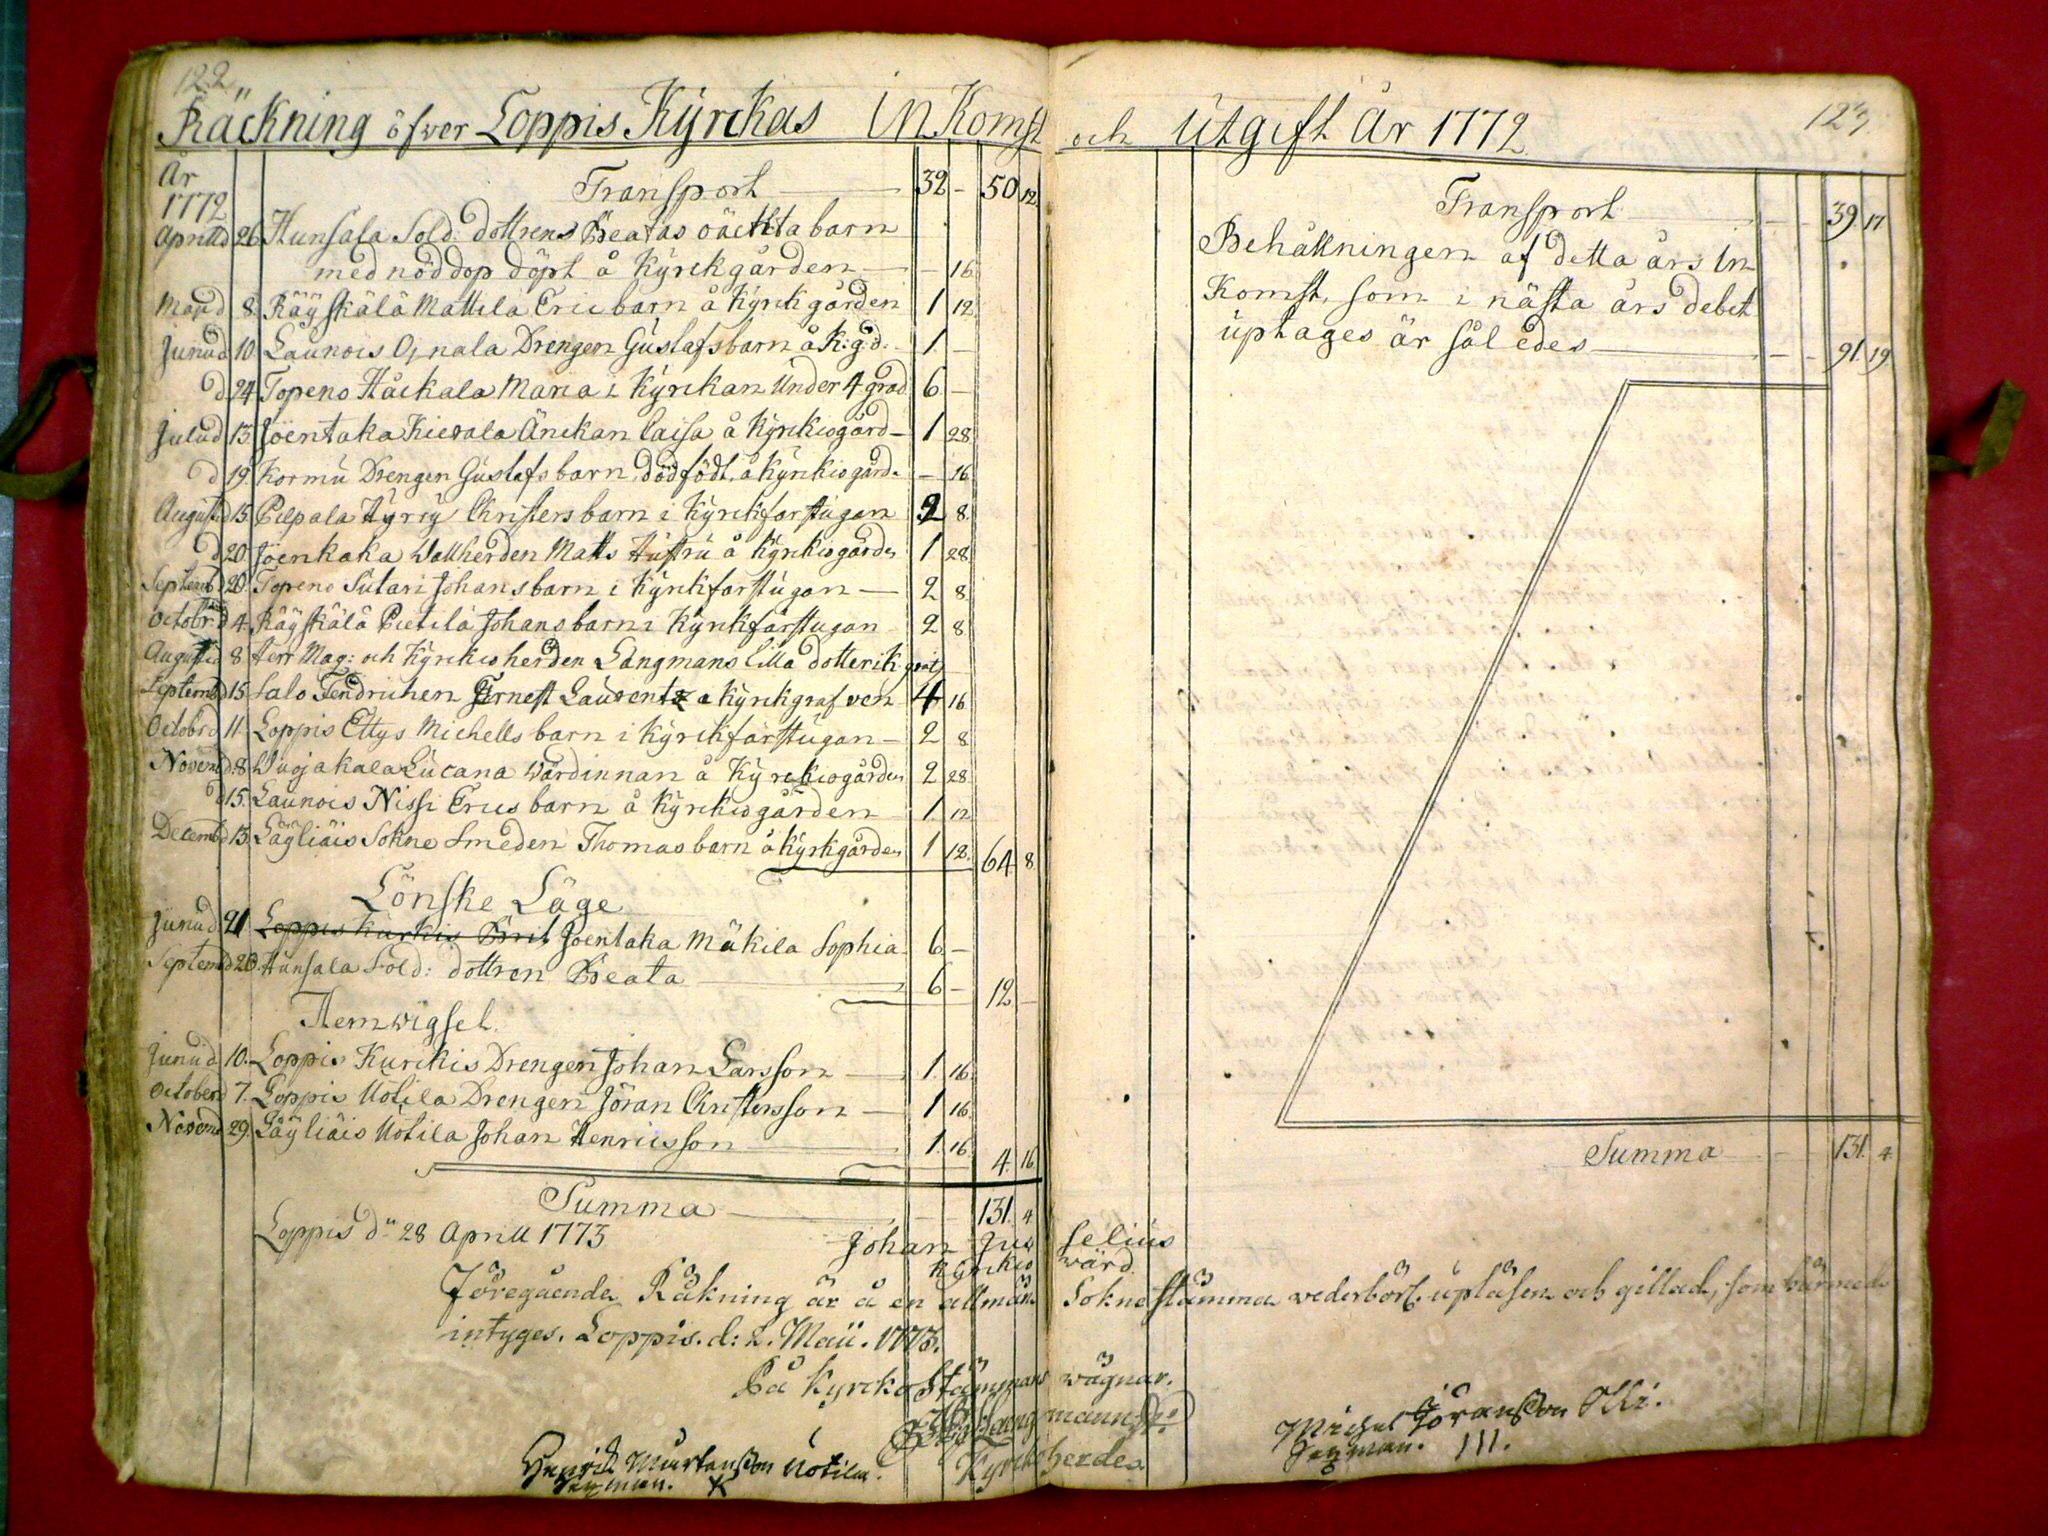 122
Räckning öfwer Loppis Kyrckas InKomst
År Transport 32 — 50 12
1772
Aprill d 26 Hunsala Sold. dottrens Beatas oäckta barn
med nöddop döpt å Kyrckgården — 16
Maji d 8. Räyskälä Mattila Eric barn å Kyrckgården 1 12
Junii d 10. Launois Ojnala Drengen Gustafs barn å K:g:d: 1. —
d 24 Topeno Håckala Maria i Kyrckan Under 4 grad 6 —
Julii d 13. Joentaka Kiesala Änckan Caisa å Kyrckiogård — 1 28
d 19. Kormu Drengen Gustafs barn, dödfödt, å Kyrckiogård. — 16
Augusti d 15. Pilpala Hyrry Christers barn i Kyrckfarstugan 2 8.
d 20. Joenkaka Wallherden Matts Hustru å Kyrckiogården 1 28
Septemb d 20. Topeno Sutari Johans barn i Kyrckfarstugan — 2 8
Octobr: d 4. Räyskälä Pietilä Johans barn i Kyrckfarstugan 2 8
Augusti d 8 Herr Mag: och Kyrckioherden Långmans lilla dotter i K. gratis
Septemb d 15 Salo Fendrichen Ernest Laurentz a Kyrckgrafven 4 16
Octobr d 11. Loppis Ettys Michells barn i Kyrckfarstugan — 2 8
Novemb d. 8 Wuojakala Lucana Wärdinnan å Kyrckiogården 2 28.
d 15. Launois Nissi Erics barn å Kyrckiogården 1 12
Decemb d 13. Läyliäis Sokne Smeden Thomas barn å Kyrkgården 1 12. 64 8
Lönske Läge
Junii d 21 Loppis Kurkis Brit Joentaka Mäkila Sophia 6 —
Septemb d 20. Hunsala Sold: dottren Beata 6 — 12 —
Hemwigsel.
Junii d 10. Loppis Kurckis Drengen Johan Larsson — 1. 16.
October d 7. Loppis Uotila Drengen Jöran Christersson — 1 16.
Novemb 29. Läyliäis Uotila Johan Henricsson 1. 16. 4. 16
Summa 131. 4
Loppis dn 28 Aprill 1773
123
och Utgift År 1772
Transport 39 17
Behållningen af detta års In
Komst, som i nästa års debet
uptages är således — 91. 19.
Summa 131. 4
Johan Juselius
Kyrckio wärd.
Föregående Räkning är å en allmän Sokne stämma wederbörl. upläsen och gillad, som härmed
intyges. Loppis. d: 2. Maii. 1773.
På Kyrcko Stämmans wägnar.
Langman
Kyrckoherde
Henrik Mårtensson Uotila.
Sexman. X
Michel Jöransson Olli.
Sexman. III.